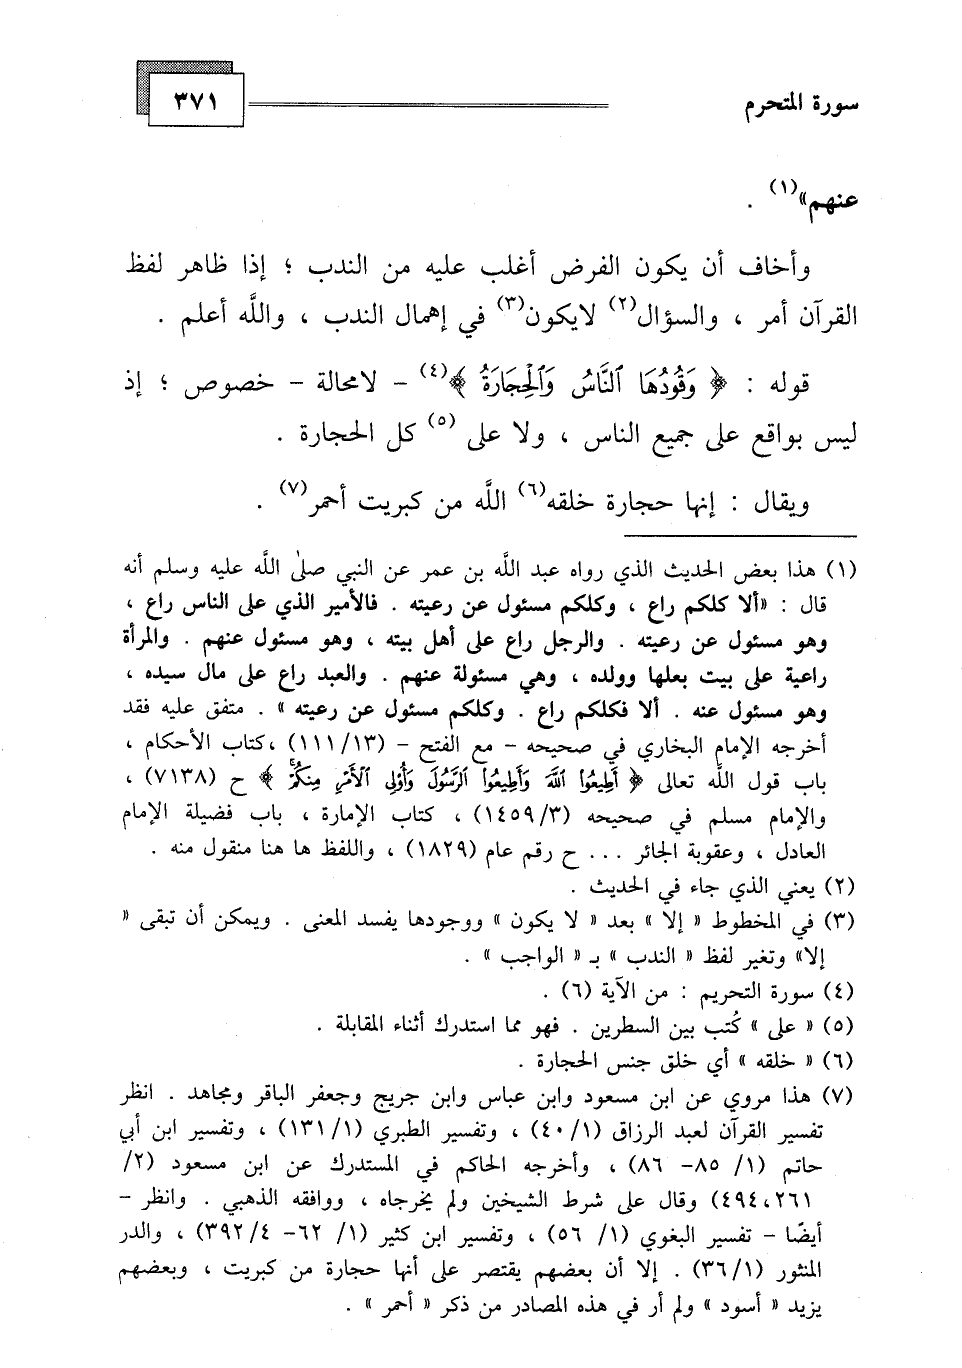 سورة المتحرم
٣٧١
عنهم»(١) .
وأخاف أن يكون الفرض أغلب عليه من الندب ؛ إذا ظاهر لفظ
القرآن أمر ، والسؤال(٢) لايكون(٣) في إهمال الندب ، والله أعلم .
قوله : ﴿ وَقُودُهَا ٱلنَّاسُ وَٱلْحِجَارَةُ ﴾(٤) - لامحالة - خصوص ؛ إذ
ليس بواقع على جميع الناس ، ولا على (٥) كل الحجارة .
ويقال : إنها حجارة خلقه(٦) الله من كبريت أحمر(٧) .
(١) هذا بعض الحديث الذي رواه عبد الله بن عمر عن النبي صلى الله عليه وسلم أنه
قال : «ألا كلكم راع ، وكلكم مسئول عن رعيته . فالأمير الذي على الناس راع ،
وهو مسئول عن رعيته . والرجل راع على أهل بيته ، وهو مسئول عنهم . والمرأة
راعية على بيت بعلها وولده ، وهي مسئولة عنهم . والعبد راع على مال سيده ،
وهو مسئول عنه . ألا فكلكم راع . وكلكم مسئول عن رعيته » . متفق عليه فقد
أخرجه الإمام البخاري في صحيحه - مع الفتح - (١١١/١٣) ،كتاب الأحكام ،
باب قول الله تعالى ﴿ أَطِيعُوا۟ ٱللَّهَ وَأَطِيعُوا۟ ٱلرَّسُولَ وَأُو۟لِى ٱلْأَمْرِ مِنكُمْ ﴾ ح (٧١٣٨) ،
والإمام مسلم في صحيحه (١٤٥٩/٣) ، كتاب الإمارة ، باب فضيلة الإمام
العادل ، وعقوبة الجائر ... ح رقم عام (١٨٢٩) ، واللفظ ها هنا منقول منه .
(٢) يعني الذي جاء في الحديث .
(٣) في المخطوط « إلا » بعد « لا يكون » ووجودها يفسد المعنى . ويمكن أن تبقى «
إلا» وتغير لفظ « الندب » بـ « الواجب » .
(٤) سورة التحريم : من الآية (٦) .
(٥) « على » كُتب بين السطرين . فهو مما استدرك أثناء المقابلة .
(٦) « خلقه » أي خلق جنس الحجارة .
(٧) هذا مروي عن ابن مسعود وابن عباس وابن جريج وجعفر الباقر ومجاهد . انظر
تفسير القرآن لعبد الرزاق (٤٠/١) ، وتفسير الطبري (١٣١/١) ، وتفسير ابن أبي
حاتم (١/ ٨٥- ٨٦) ، وأخرجه الحاكم في المستدرك عن ابن مسعود (٢/
٤٩٤،٢٦١) وقال على شرط الشيخين ولم يخرجاه ، ووافقه الذهبي . وانظر -
أيضًا - تفسير البغوي (١/ ٥٦) ، وتفسير ابن كثير (١/ ٦٢- ٣٩٢/٤) ، والدر
المنثور (٣٦/١) . إلا أن بعضهم يقتصر على أنها حجارة من كبريت ، وبعضهم
يزيد « أسود » ولم أر في هذه المصادر من ذكر « أحمر » .